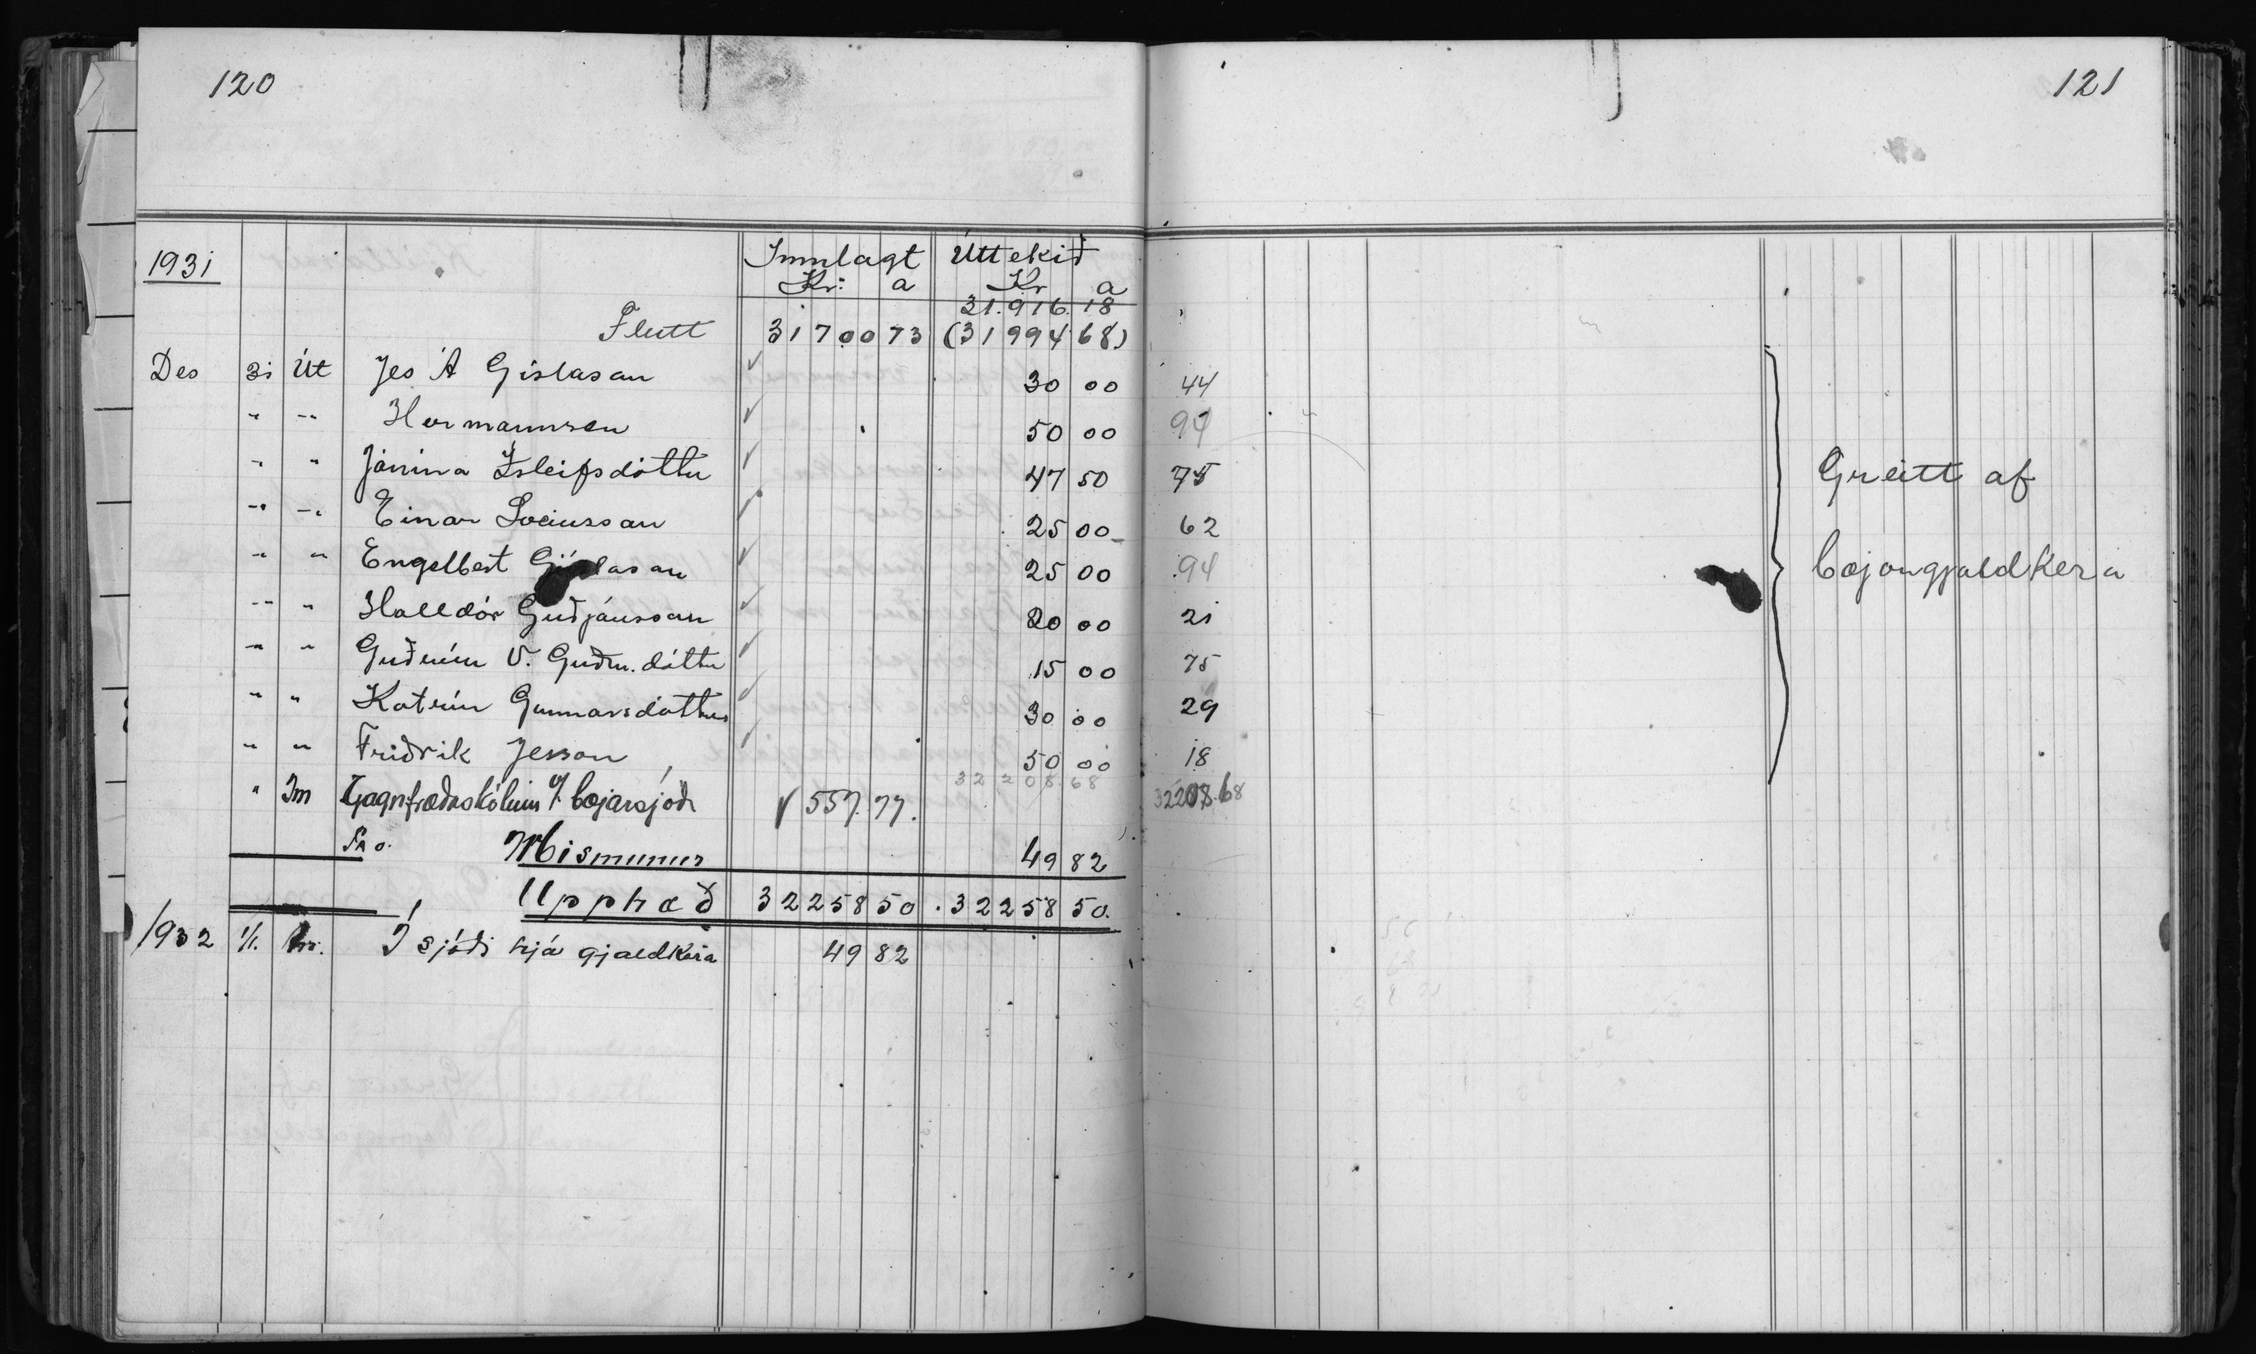 120
121
1931 Innlagt Úttekið
Kr: a Kr a
21.916.18
Flutt 31700 73 (31994 68)
Des 31 Út Jes A Gíslason 30 00 44
" " Hermannsen 50 00 94
" " Jónína Ísleifsdóttir 47 50 75
" " Einar Loeiusson 25 00 62
" " Engelbert Gíslason 25 00 94
" " Halldór Guðjónsson 20 00 21
" " Guðrún V. Guðm.dóttir 15 00 75
" " Katrín Gunnarsdóttur 30 00 29
" " Friðrik Jesson 50 00 18
32208.68
" Im Gagnfræðaskólinn v/ bæjarsjóði 557.77. 32208.68
Mismunur 49 82
Upphæð 32258 50 32258 50.
1932 1/1. Í sjóði hjá gjaldkera 49 82
Greitt af
bæjargjaldkera